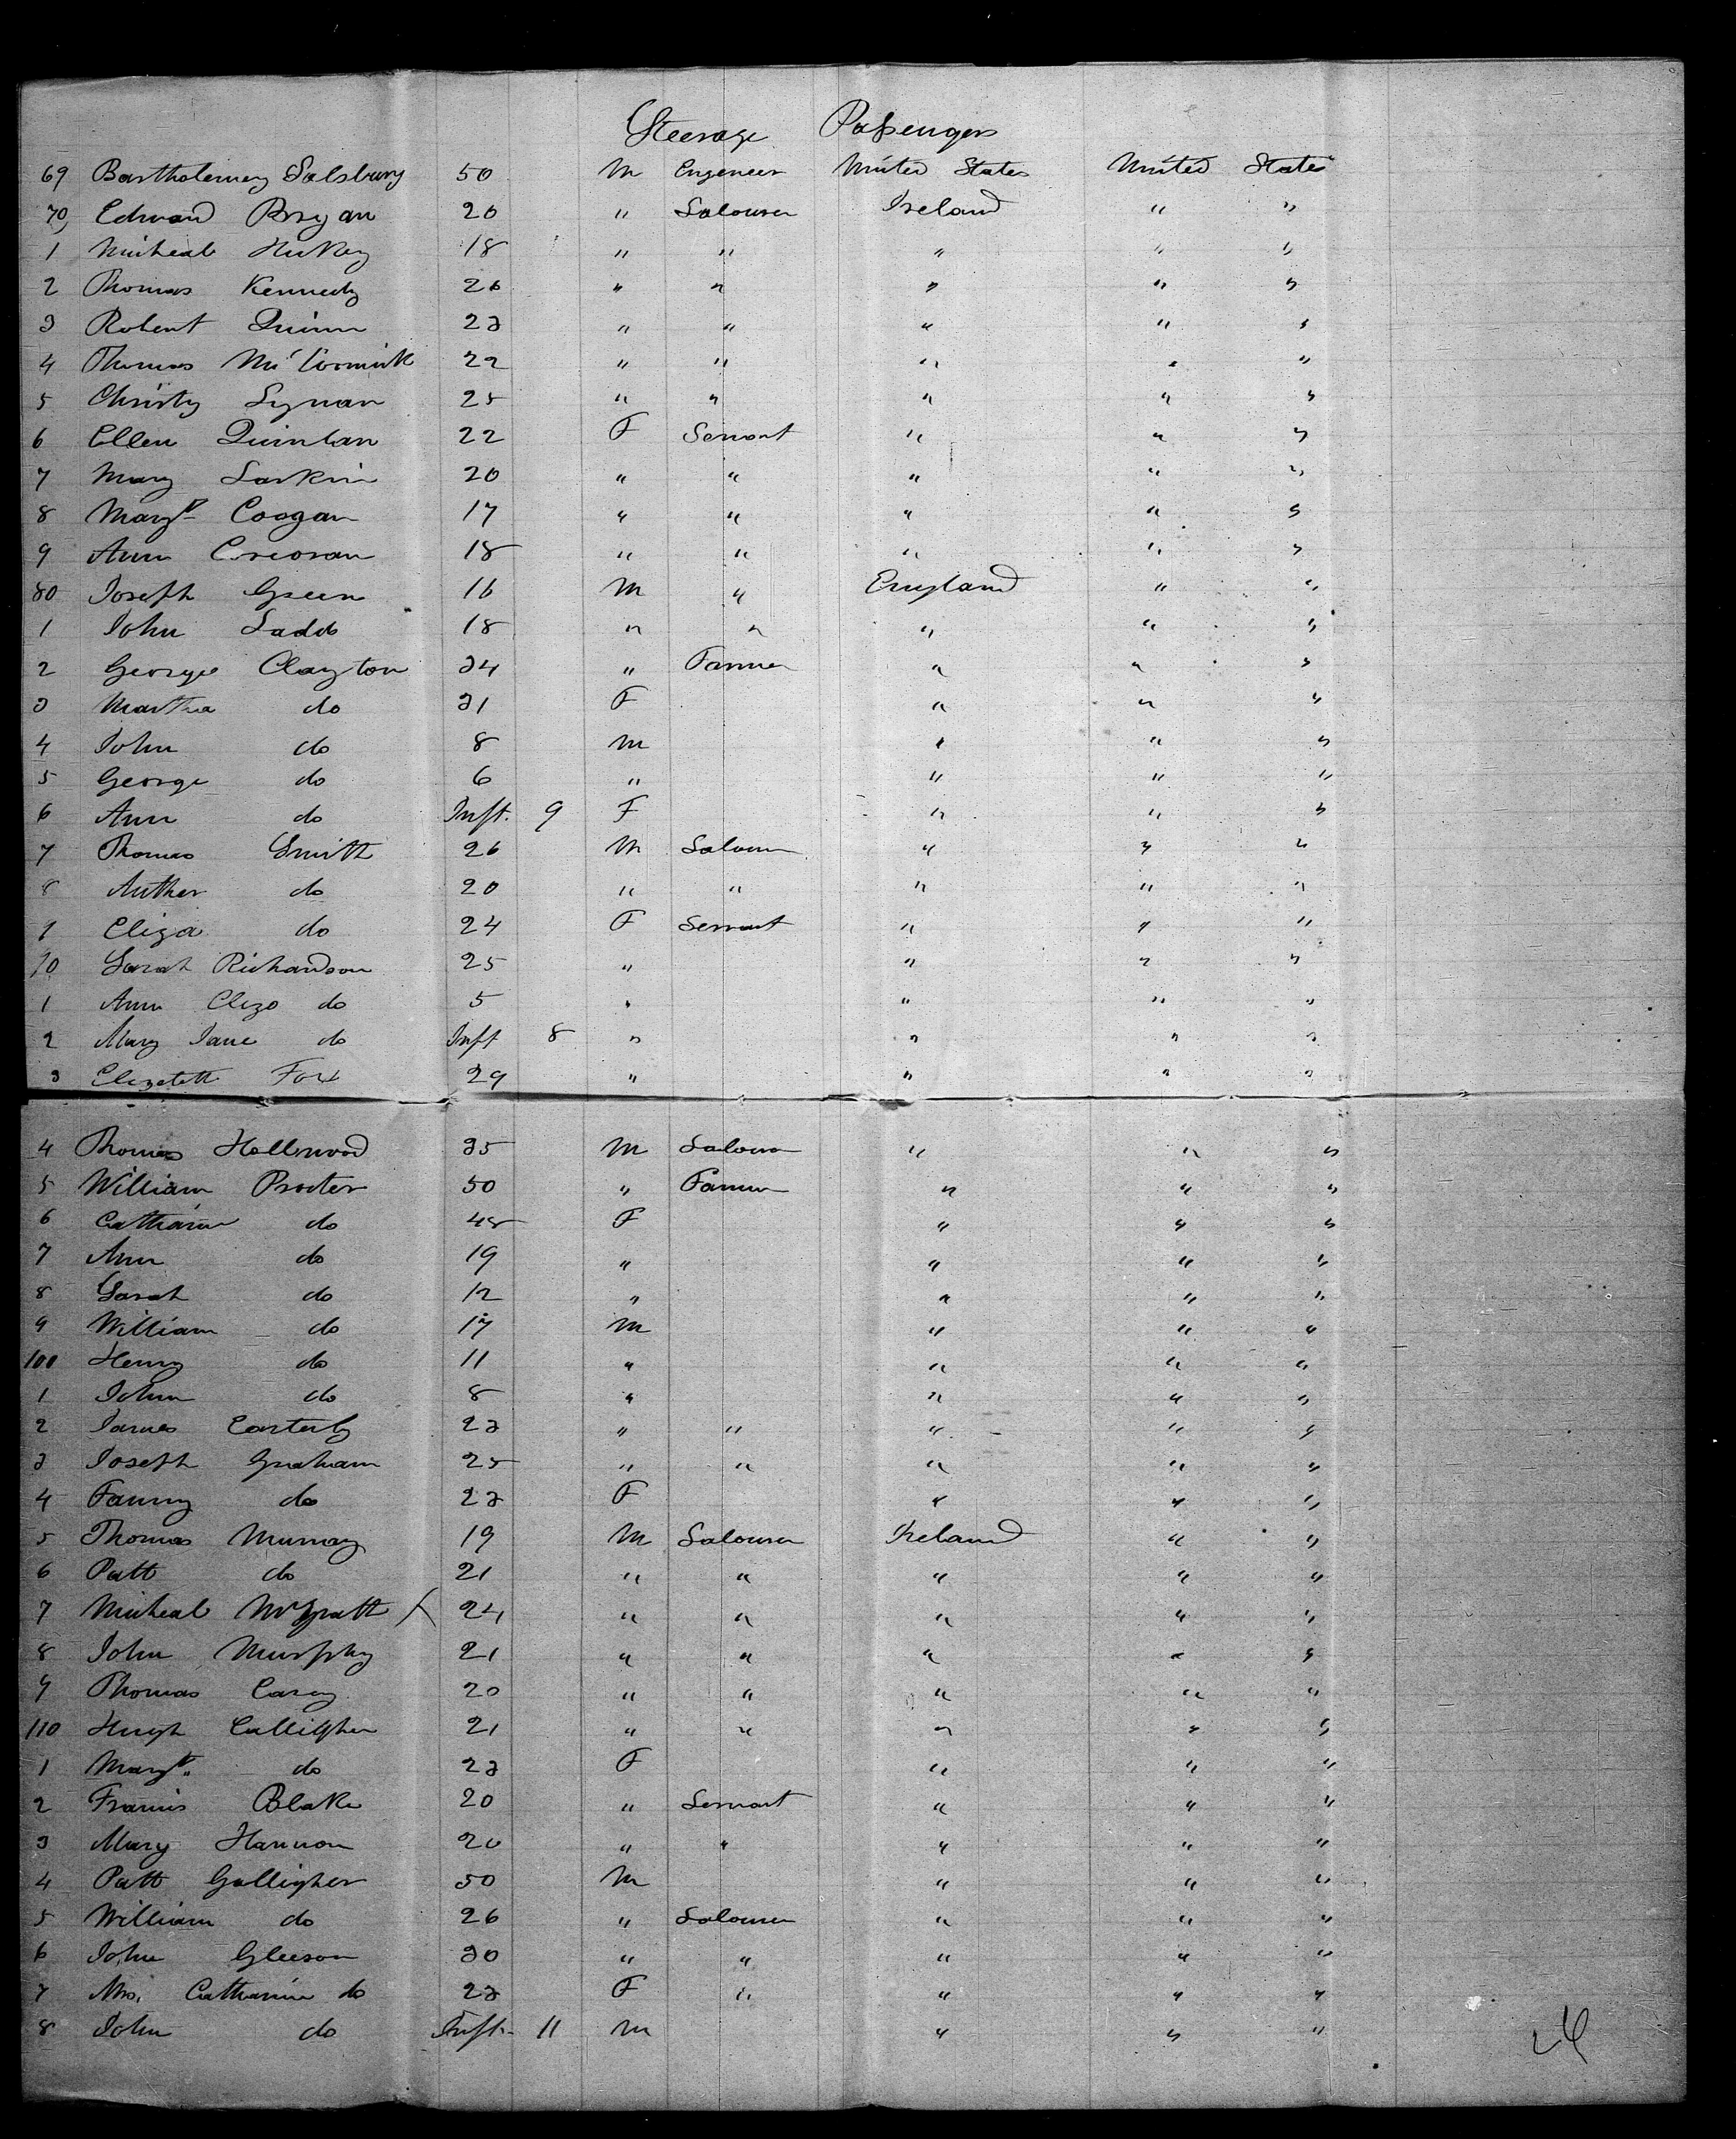 Steerage Passengers
69 Bartholemey Salsbury 50 M Engeneer United States United States
70 Edward Bryan 20 " Labourer Ireland " "
1 Micheal Hickey 18 " " " " "
2 Thomas Kennedy 26 " " " " "
3 Robert Quinn 23 " " " " "
4 Thomas McCormick 22 " " " " "
5 Christy Lynan 25 " " " " "
6 Ellen Quinlan 22 F Servant " " "
7 Mary Larkin 20 " " " " "
8 Margt Coogan 17 " " " " "
9 Ann Corcoran 18 " " " " "
80 Joseph Green 16 M " England " "
1 John Ladd 18 " " " " "
2 George Clayton 34 " Farmer " " "
3 Martha do 31 F " " "
4 John do 8 M " " "
5 George do 6 " " " "
6 Ann do Inft. 9 F " " "
7 Thomas Smith 26 M Labourer " " "
8 Auther do 20 " " " " "
9 Eliza do 24 F Servant " " "
90 Sarah Richardson 25 " " " "
1 Ann Eliza do 5 " " " "
2 Mary Jane do Inft 8 " " " "
3 Elizabeth Fox 29 " " " "
4 Thomas Hollwood 35 M Labourer " " "
5 William Procter 50 " Farmer " " "
6 Catharine do 48 F " " "
7 Ann do 19 " " " "
8 Sarah do 12 " " " "
9 William do 17 M " " "
100 Henry do 11 " " " "
1 John do 8 " " " "
2 James Easterby 23 " " " " "
3 Joseph Graham 25 " " " " "
4 Fanny do 23 F " " "
5 Thomas Murray 19 M Labourer Ireland " "
6 Patt do 21 " " " " "
7 Micheal McGratt X 24 " " " " "
8 John Murphy 21 " " " " "
9 Thomas Carey 20 " " " " "
110 Hugh Calligher 21 " " " " "
1 Margt do 23 F " " "
2 Francis Blake 20 " Servant " " "
3 Mary Hannon 20 " " " " "
4 Patt Galligher 50 M " " "
5 William do 26 " Labourer " " "
6 John Gleeson 30 " " " " "
7 Mrs. Catharine do 23 F " " " "
8 John do Inft. 11 M " " "